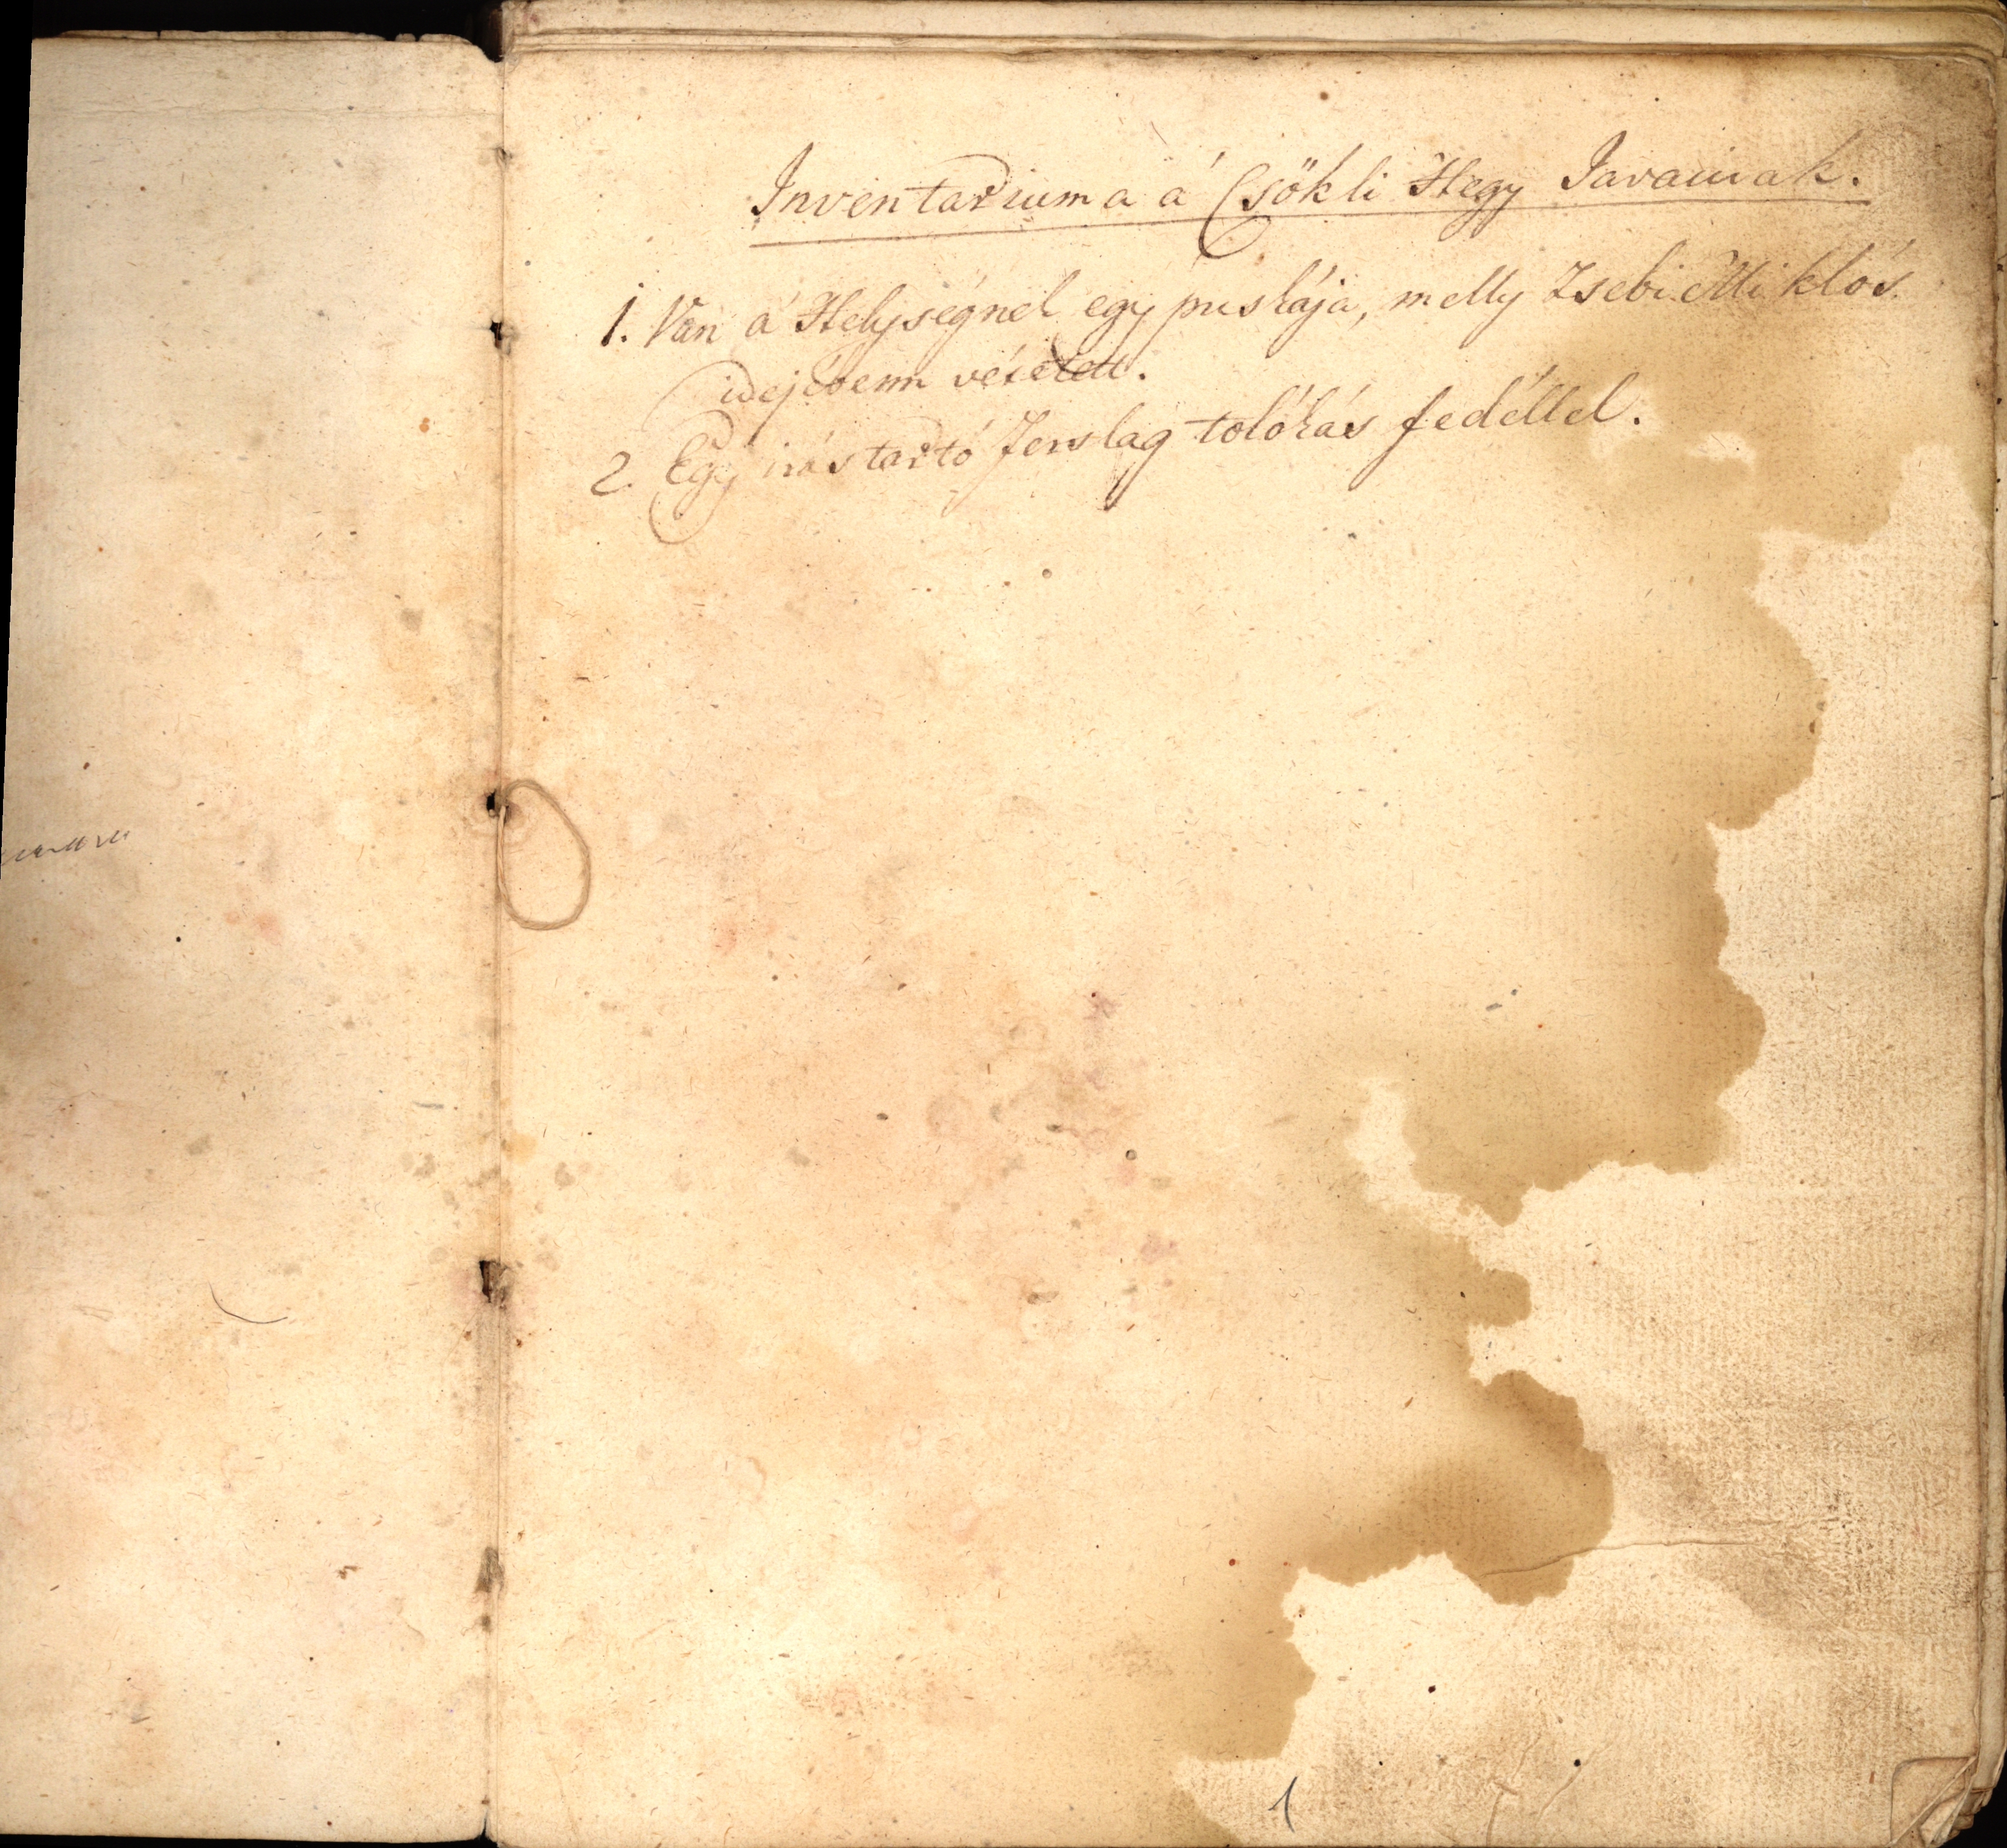 Inventariuma á Csökli Hegy Javainak.
1. Van á Helységnek egy puskája, melly Zsebi Miklós
idejébenn vétetett.
2. Egy irástartó Ferslag tolókás fedéllel.
1